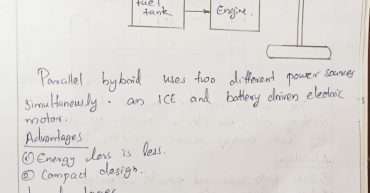 fuel
tank
Engine.
Parallel hybrid uses two different power sources
simultaneously. an ICE and battery driven electric
motor.
Advantages
① Energy loss is less.
② Compact design.